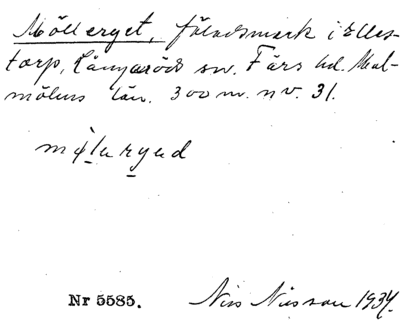 Mölleryet, fäladsmark i Elles-
torp, Långaröds sn. Färs hd. Mal-
möhus län. 300 m. nv. 31.
Nr 5585.
Nils Nilsson 1934.